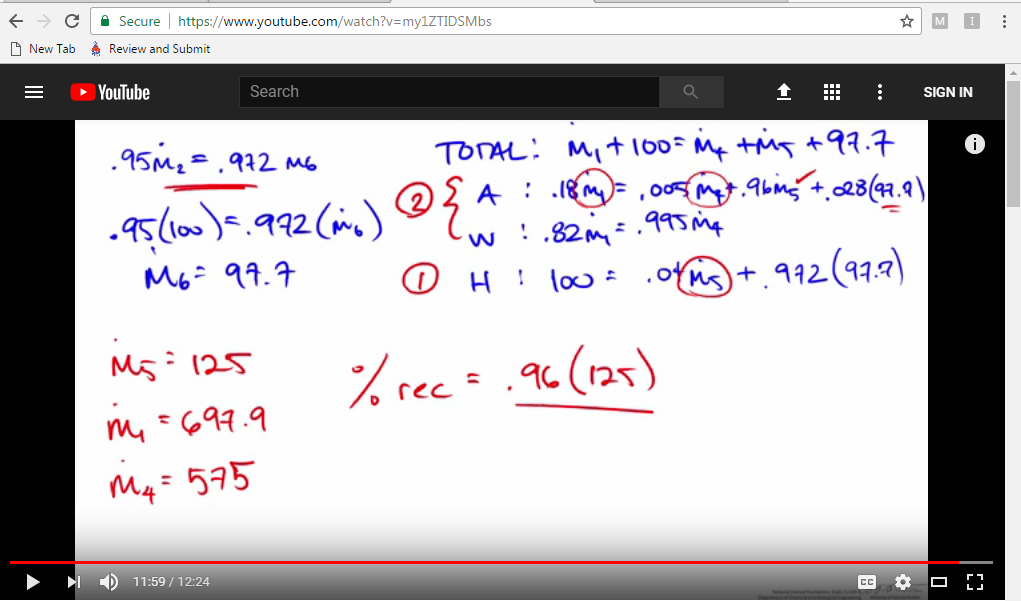 Secure | https://www.youtube.com/watch?v=my1ZTIDSMbs M I
New Tab Review and Submit
YouTube Search SIGN IN
i
.95ṁ₂ = .972 ṁ₆
.95(100) = .972(ṁ₆)
ṁ₆ = 97.7
TOTAL: ṁ₁ + 100 = ṁ₄ + ṁ₅ + 97.7
② { A : .18ṁ₁ = .005ṁ₄ + .96ṁ₅ + .028(97.7)
W : .82ṁ₁ = .995ṁ₄
① H : 100 = .04ṁ₅ + .972(97.7)
ṁ₅ = 125
ṁ₁ = 697.9
ṁ₄ = 575
% rec = .96(125)
11:59 / 12:24 CC